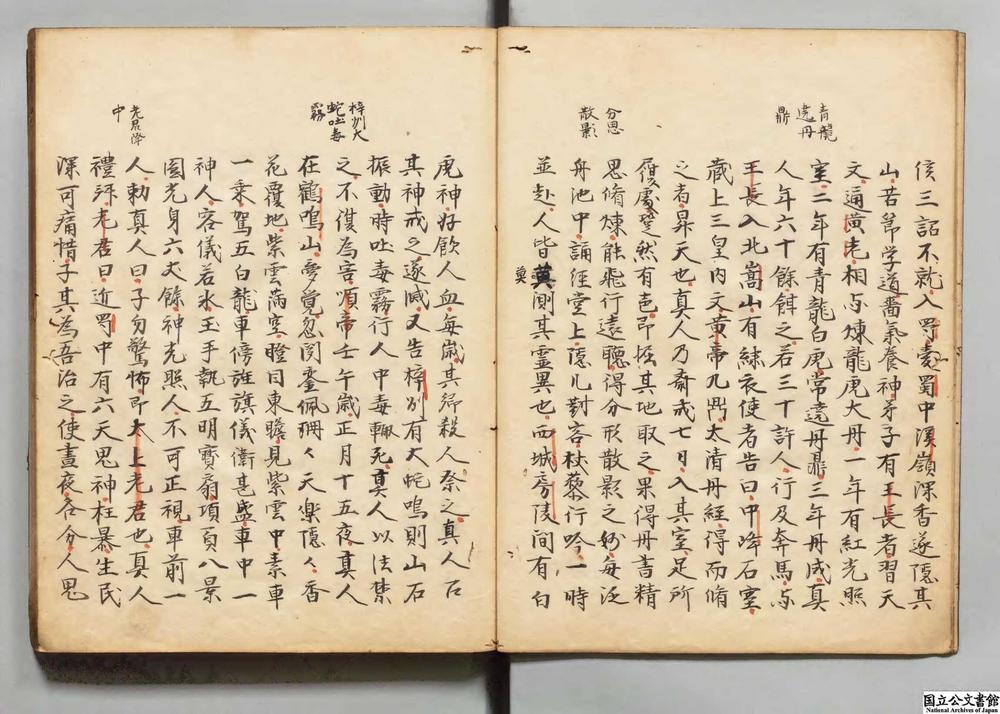 青龍
遶丹
鼎
侯三詔不就入蜀愛蜀中溪嶺深香遂隠其
山苦節学道嗇氣養神弟子有王長者習天
文通黄老相与煉龍虎大丹一年有紅光照
室二年有青龍白虎常遶丹鼎三年丹成真
人年六十餘餌之若三十許人行及奔馬与
王長入北嵩山有繍衣使者告曰中峰石室
蔵上三皇内文黄帝九鼎太清丹経得而脩
之者昇天也真人乃齋戒七日入其室足所
履處跫然有声即掘其地取之果得丹書精
思脩煉能飛行遠聴得分形散影之妙每泛
舟池中誦経堂上隠几對客杖藜行吟一時
並赴人皆莫測其霊異也西城房陵间有白
莫
分思
散影
虎神好飲人血每歳其郷殺人祭之真人召
其神戒之遂滅又告梓州有大蛇鳴則山石
振動時吐毒霧行人中毒輙死真人以法禁
之不復為害順帝壬午歳正月十五夜真人
在鶴鳴山夢覚忽聞鑾佩珊々天樂隠々香
花覆地紫雲満空瞪目東瞻見紫雲中素車
一乗駕五白龍車傍旌旗儀衛甚盛車中一
神人容儀若氷玉手執五明寳扇項負八景
圓光身六丈餘神光照人不可正視車前一
人勅真人曰子勿驚怖即太上老君也真人
禮拜老君曰近蜀中有六天鬼神枉暴生民
深可痛惜子其為吾治之使晝夜各分人鬼
梓州大
蛇吐毒
霧
老君降
中
国立公文書館
National Archives of Japan